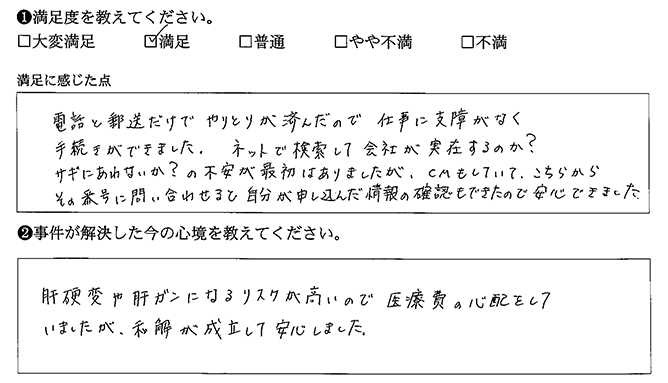 ❶満足度を教えてください。
□大変満足 ☑満足 □普通 □やや不満 □不満
満足に感じた点
電話と郵送だけでやりとりが済んだので 仕事に支障がなく
手続きができました。 ネットで検索して会社が実在するのか?
サギにあわないか?の不安が最初はありましたが、CMもしていて、こちらから
その番号に問い合わせると自分が申し込んだ情報の確認もできたので安心できました。
❷事件が解決した今の心境を教えてください。
肝硬変や肝ガンになるリスクが高いので 医療費の心配をして
いましたが、和解が成立して安心しました。